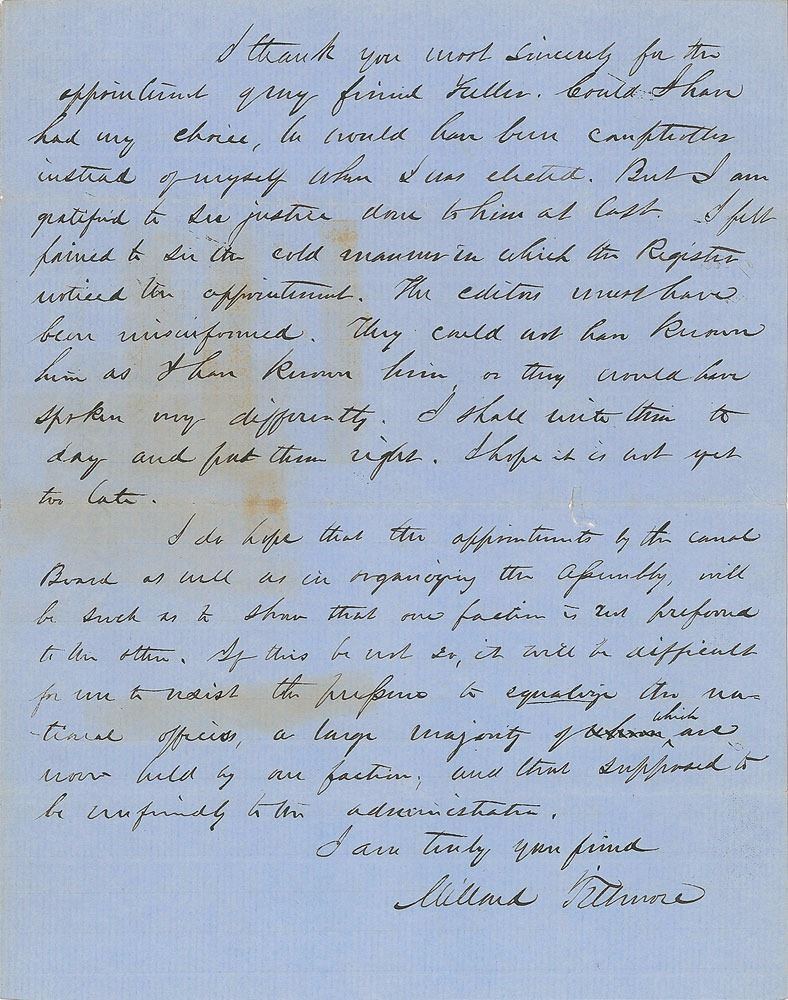 I thank you most sincerely for the
appointment of my friend Fuller. Could I have
had my choice, he would have been comptroller
instead of myself when I was elected. But I am
gratified to see justice done to him at last. I felt
pained to see the cold manner in which the Register
noticed the appointment. The editors must have
been misinformed. They could not have known
him as I have known him, or they would have
spoken very differently. I shall write them to
day and put them right. I hope it is not yet
too late.
I do hope that the appointments by the canal
Board as well as in organizing the Assembly, will
be such as to show that one faction is not preferred
to the other. If this be not so, it will be difficult
for me to resist the pressure to equalize the na-
tional offices, a large majority of whom which are
now held by one faction, and that supposed to
be unfriendly to the administration.
I am truly your friend
Millard Fillmore